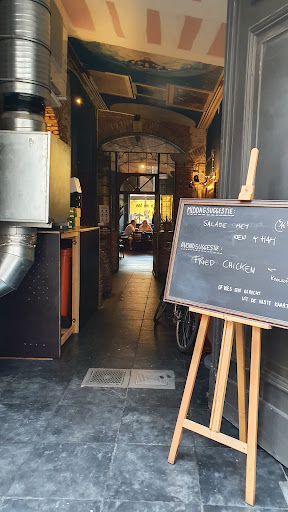 MIDDAGSUGGESTIE
SALADE MET
KEN + HAM
AVONDSUGGESTIE:
FRIED CHICKEN
OF KIES EEN GERECHT
UIT DE VASTE KAART